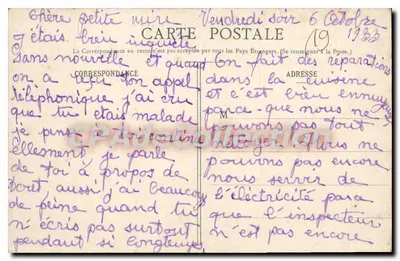 Chère petite mère
Vendredi soir 6 Octobre
1933
J'étais bien inquiète
CARTE POSTALE
19
La Correspondance au recto n'est pas acceptée par tous les Pays Étrangers. (Se renseigner à la Poste.)
CORRESPONDANCE
ADRESSE
M
sans nouvelle et quand
on a reçu ton appel
téléphonique j'ai cru
que tu étais malade
je
ellement je parle
de toi à propos de
aussi j'ai beaucoup
de peine quand tu
n'écris pas surtout
pendant si longtemps
On fait des réparations
dans la cuisine
et c'est bien
parce que nous ne
pouvons pas tout
nous ne
pouvons pas encore
nous servir de
l'électricité parce
que l'inspecteur
n'est pas encore